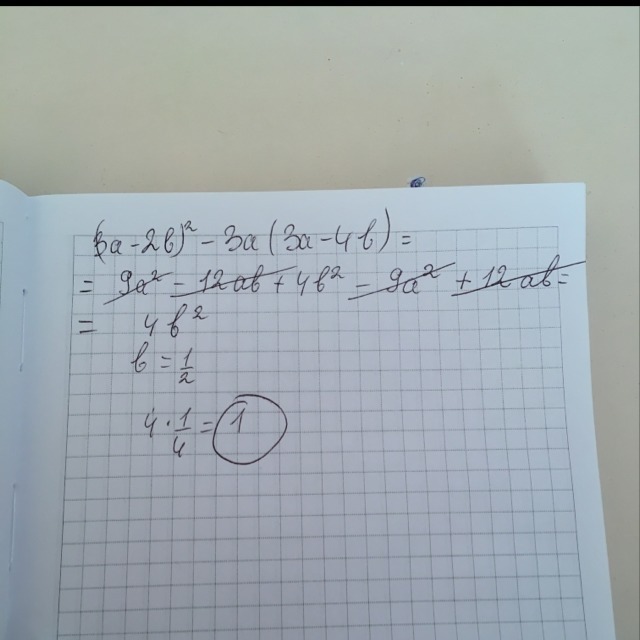 (3a-2b)² - 3a(3a-4b) =
= 9a² - 12ab + 4b² - 9a² + 12ab =
= 4b²
b = 1/2
4 · 1/4 = 1